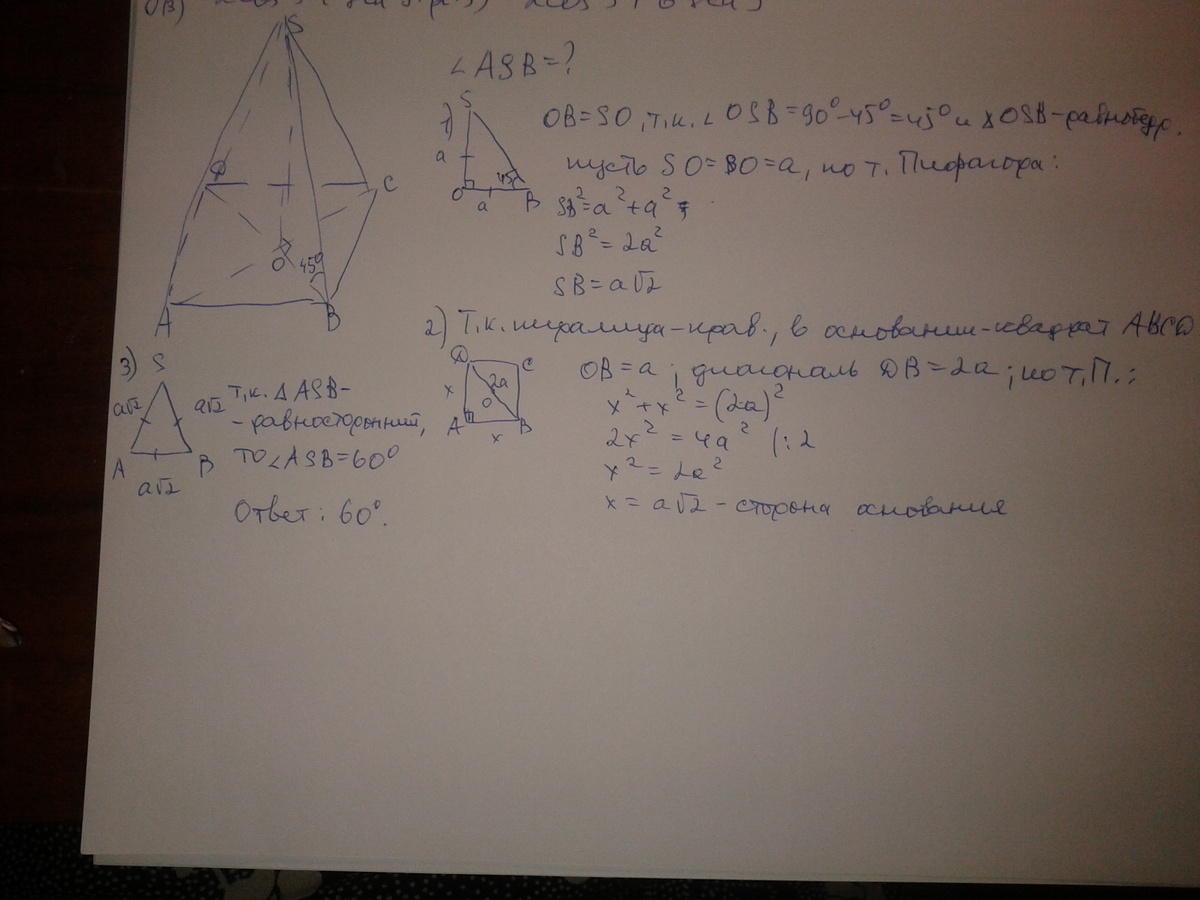 S
A
B
C
D
O
45°
∠ASB=?
1)
S
a
O
a
B
45°
OB=SO, т.к. ∠OSB=90°-45°=45° и ΔOSB-равнобедр.
пусть SO=BO=a, по т. Пифагора:
SB²=a²+a²;
SB²=2a²
SB=a√2
2) Т.к. пирамида-прав., в основании-квадрат ABCD
D
C
x
2a
O
A
B
x
OB=a; диагональ DB=2a; по т.П.:
x²+x²=(2a)²
2x²=4a² |:2
x²=2a²
x=a√2-сторона основания
3)
S
a√2
a√2
A
B
a√2
т.к. ΔASB-
-равносторонний,
то ∠ASB=60°
Ответ: 60°.